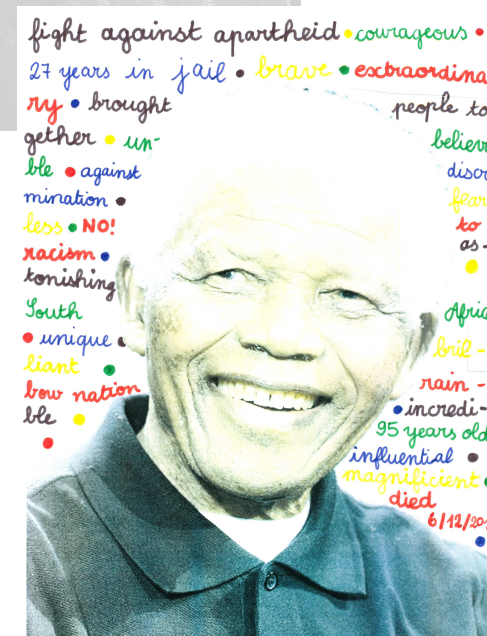 fight against apartheid • courageous •
27 years in jail • brave • exctraordina
ry • brought people to
gether • un- believ
ble • against discr
mination • fear
less • NO! to
racism • as-
tonishing •
South Afric
• unique • bril-
liant • rain-
bow nation • incredi-
ble • 95 years old
• influential •
magnificient •
died
6/12/201